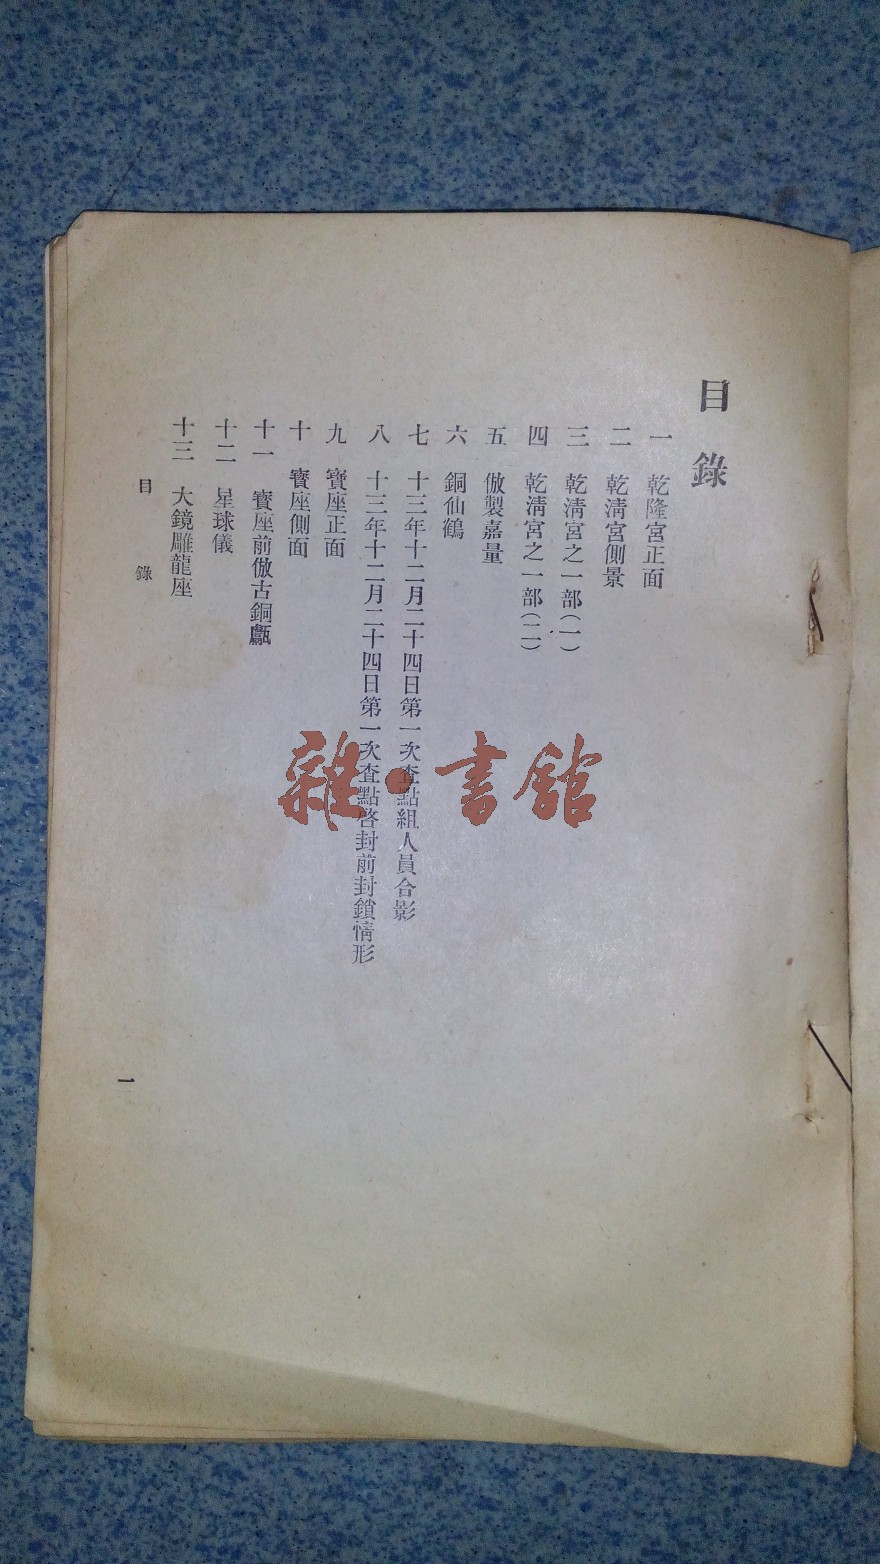 目錄
一 乾隆宮正面
二 乾淸宮側景
三 乾淸宮之一部(一)
四 乾淸宮之一部(二)
五 倣製嘉量
六 銅仙鶴
七 十三年十二月二十四日第一次查點組人員合影
八 十三年十二月二十四日第一次查點啓封前封鎖情形
九 寶座正面
十 寶座側面
十一 寶座前倣古銅甗
十二 星球儀
十三 大鏡雕龍座
目錄
一
雜·書館